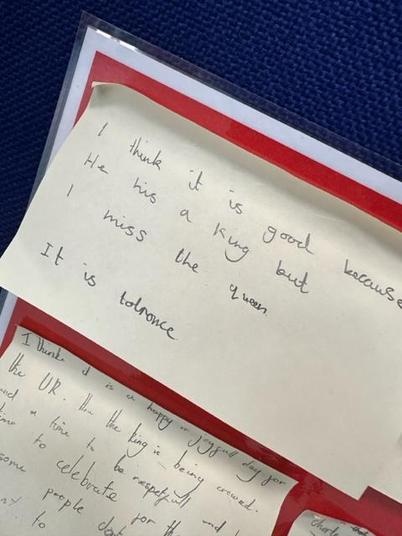 I think it is good because
He his a king but
I miss the queen
It is tolronce
I think it is a happy joyfull day for
the UK. the king is being crowed.
and a time to be respetfull and
time to celebrate for the
some people don
to